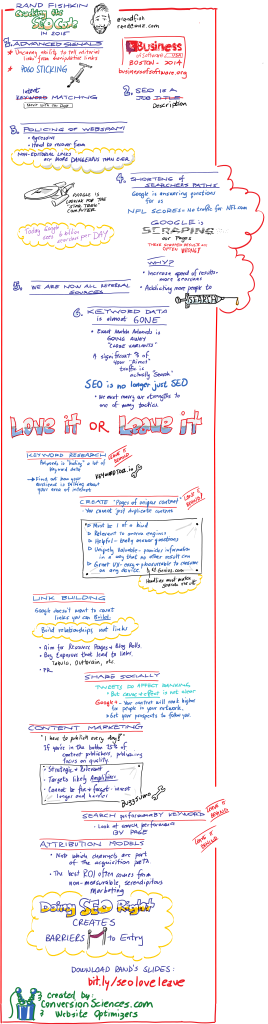 RAND FISHKIN
Cracking the
SEO Code
IN 2015
@randfish
randfishkin.com
Business
of Software USA
BOSTON - 2014
businessofsoftware.org
1. ADVANCED SIGNALS
* Uncanny ability to tell editorial
links from manipulative links
* POGO STICKING
Intent
KEYWORD MATCHING
2. SEO IS A
JOB TITLE
Description
3. POLICING OF WEBSPAM
• Aggressive
• Hard to recover from
NON-EDITORIAL LINKS
ARE MORE DANGEROUS THAN EVER
GOOGLE IS
LOOKING FOR THE
"STAR TREK"
COMPUTER
Today Google
sees 6 billion
searches per DAY
4. SHORTENING OF
SEARCHERS PATHS
Google is answering questions
for us.
NFL SCORES = No traffic for NFL.com
GOOGLE is
SCRAPING
our Pages
THESE SCRAPED RESULTS ARE
OFTEN WRONG!
WHY?
• Increase speed of results =
more searches
• Addicting more people to
SEARCH
5. WE ARE NOW ALL EXTERNAL
SOURCES
6. KEYWORD DATA
is almost GONE
• Exact Match Adwords is
GOING AWAY
"CLOSE VARIANTS"
A significant % of
your "Direct"
traffic is
actually Search
SEO is no longer just SEO
• We must marry our strengths to
one of many tactics.
Love it OR Leave it
KEYWORD RESEARCH
Adwords is "hiding" a lot of
keyword data
→ Find out how your
audience is talking about
your area of interest
KEYWORDTOOL.io
CREATE "Pages of unique content"
• You cannot just duplicate content
• Must be 1 of a kind
• Relevant to search engines
• Helpful - Really answer questions
• Uniquely Valuable - provides information
in a way that no other result can
• Great UX - easy + pleasurable to consume
on any device.
Headlines must match
searcher intent
LINK BUILDING
Google doesn't want to count
links you can Build.
Build relationships, not links
• Aim for Resource Pages + Blog Rolls
• Buy Exposure that lead to links
Taboola, Outbrain, etc.
• PR
SHARE SOCIALLY
TWEETS DO AFFECT RANKING
* But cause + effect is not clear
Google+ - Your content will rank higher
for people in your network.
→ Get your prospects to follow you.
CONTENT MARKETING
"I have to publish every day!"
If you're in the bottom 75% of
content publishers, publishing
focus on quality
• Strategic + Relevant
• Targets likely Amplifiers
• Cannot be fire + forget - invest
longer and harder
BUZZSUMO
SEARCH performance BY KEYWORD
• Look at search performance
BY PAGE
ATTRIBUTION MODELS
• Note which channels are part
of the acquisition path
• The best ROI often comes from
non-measurable, serendipitous
marketing
Doing SEO Right
CREATES
BARRIERS to Entry
DOWNLOAD RAND'S SLIDES:
bit.ly/seoloveleave
Created by:
ConversionSciences.com
Website Optimizers